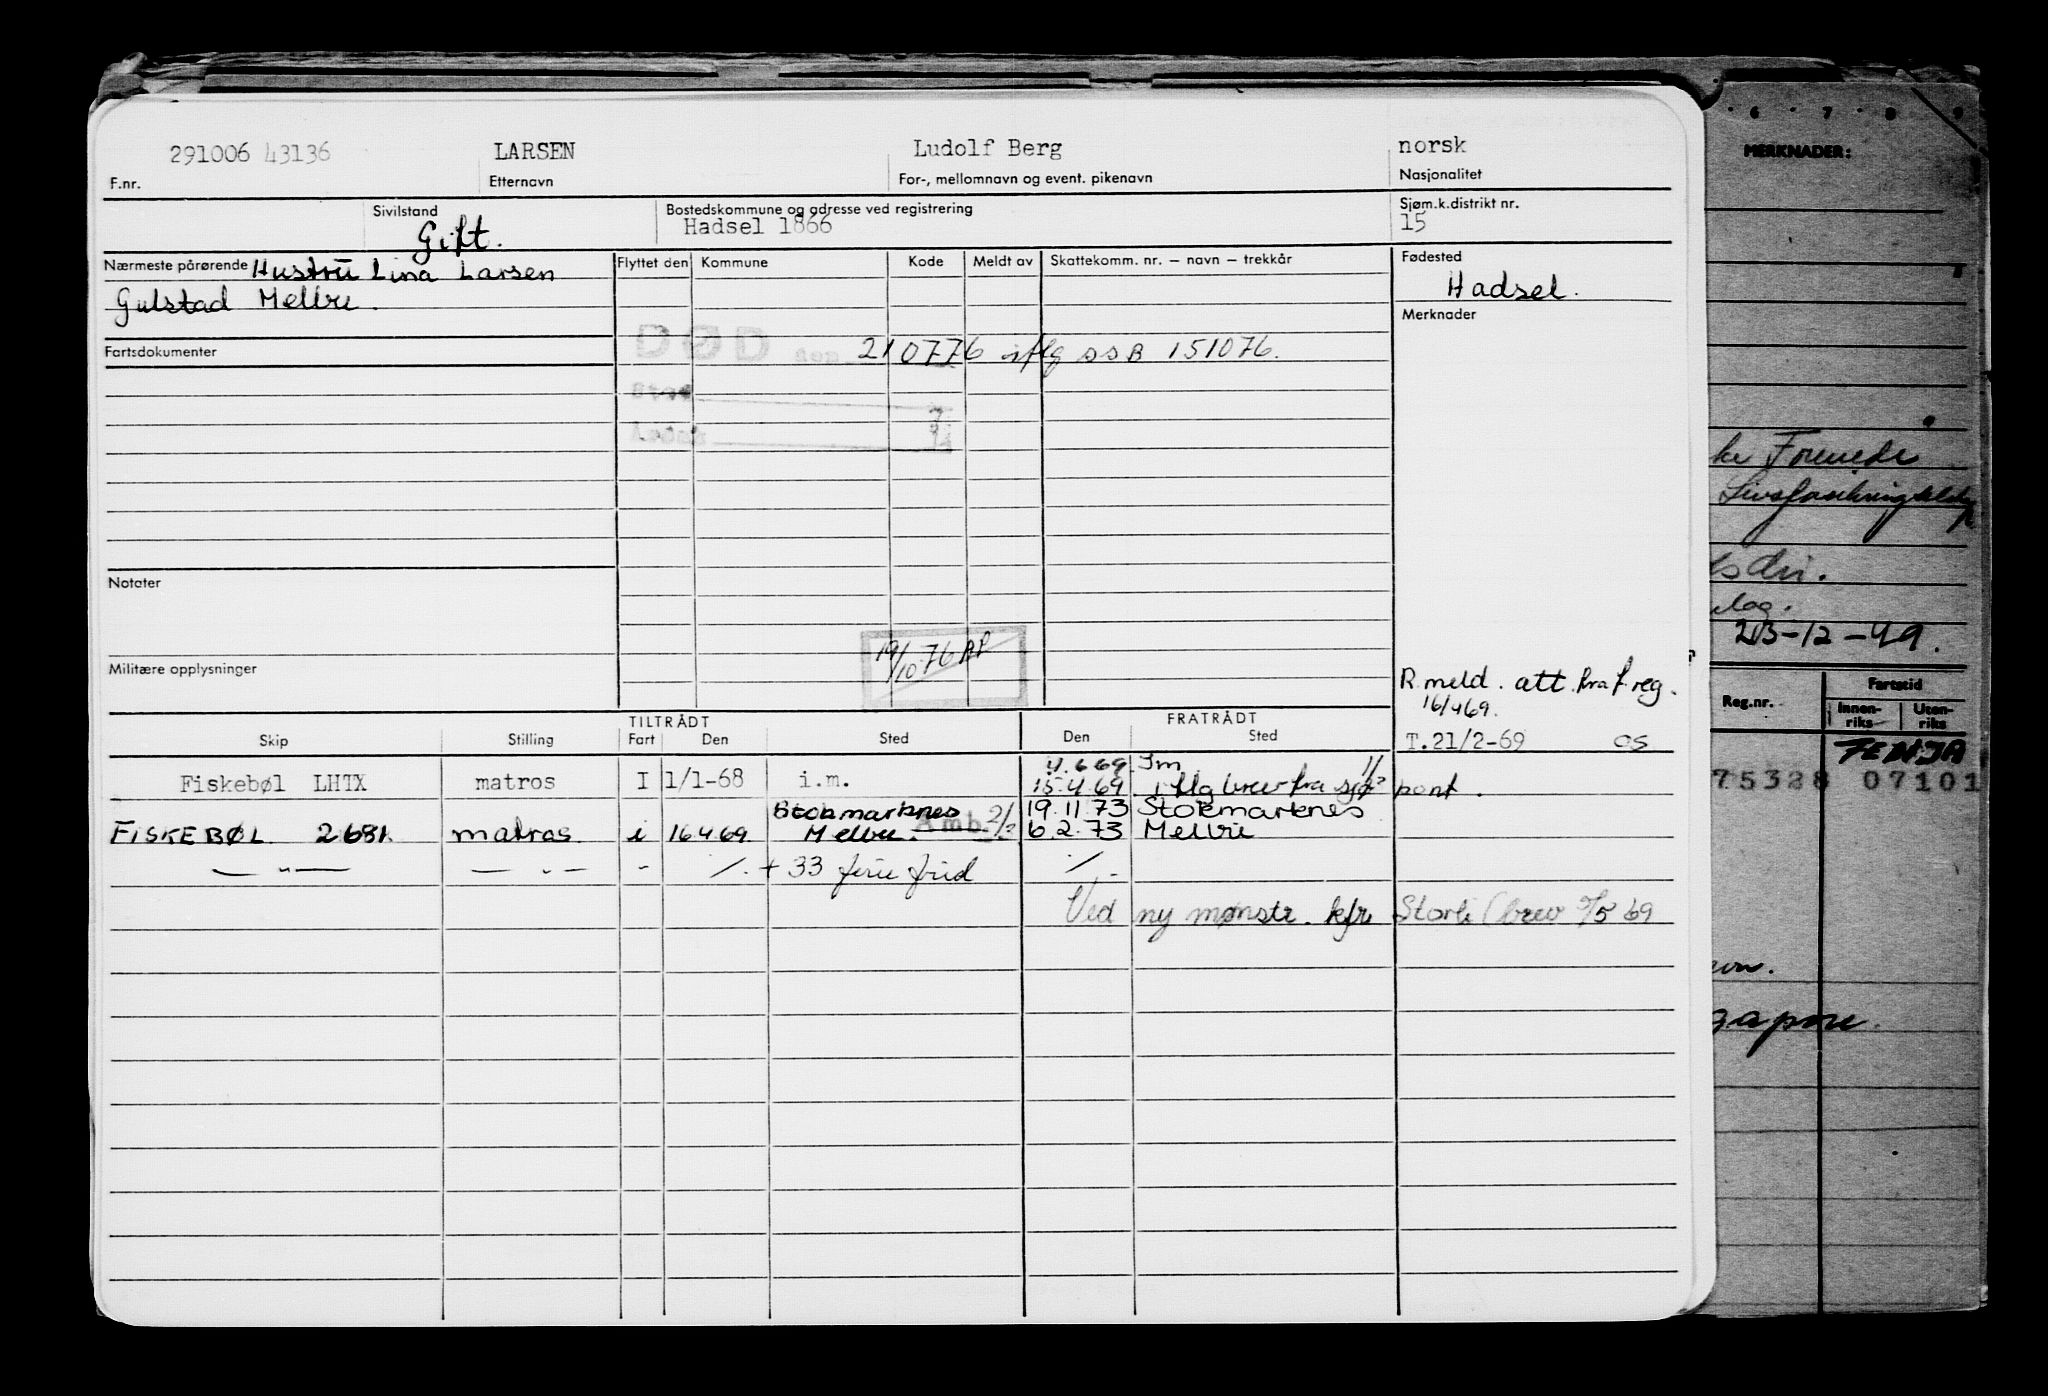 291006 43136 LARSEN Ludolf Berg norsk
F.nr. Etternavn For-, mellomnavn og event. pikenavn Nasjonalitet
Sivilstand Bostedskommune og adresse ved registrering Sjøm.k.distrikt nr.
Gift. Hadsel 1866 15
Nærmeste pårørende Hustru Lina Larsen Flyttet den Kommune Kode Meldt av Skattekomm. nr. – navn – trekkår Fødested
Gulstad Melbu. Hadsel.
Merknader
DØD 210776 iflg SSB 151076.
Fartsdokumenter
Notater
19/10-76
Militære opplysninger
R.meld. att. fra f.reg.
16/469.
TILTRÅDT FRATRÅDT
Skip Stilling Fart Den Sted Den Sted T.21/2-69 OS
4.6.69 Im
Fiskebøl LHTX matros I 1/1-68 i.m. 15.4.69 iflg brev fra
Stokmarknes 2/3 19.11.73 Stokmarknes
FISKEBØL 2681. matros. i 16469. Melbu. Amb. 6.2.73 Melbu
— " — — " — - ./. + 33 ferie frid ./.
Ved ny mønstr. kfr Storli (brev 9/5 69
6 7 8 9
MERKNADER:
23-12-49.
Reg.nr. Fartstid
Innen-riks Uten-riks
FENJA
75328 07101